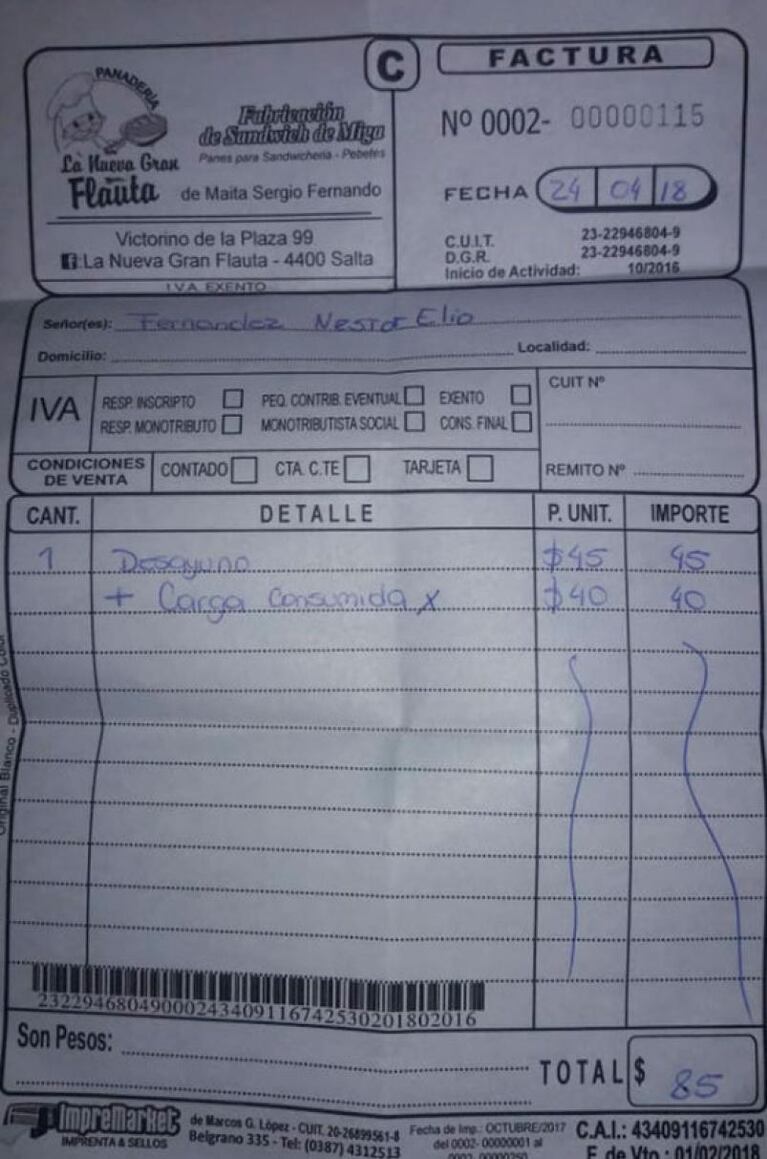 PANADERÍA
La Nueva Gran
Flauta
Fabricación
de Sandwich de Miga
Panes para Sandwicheria - Pebetes
de Maita Sergio Fernando
Victorino de la Plaza 99
La Nueva Gran Flauta - 4400 Salta
I.V.A. EXENTO
C
FACTURA
Nº 0002- 00000115
FECHA 24 04 18
C.U.I.T. 23-22946804-9
D.G.R. 23-22946804-9
Inicio de Actividad: 10/2016
Señor(es): Fernandez Nestor Elio
Domicilio: Localidad:
IVA
RESP. INSCRIPTO PEQ. CONTRIB. EVENTUAL EXENTO
RESP. MONOTRIBUTO MONOTRIBUTISTA SOCIAL CONS. FINAL
CUIT Nº
CONDICIONES
DE VENTA
CONTADO CTA. C.TE TARJETA
REMITO Nº
CANT. DETALLE P. UNIT. IMPORTE
1 Desayuno $45 45
+ Carga Consumida x $40 40
Original Blanco - Duplicado Color
2322946804900024340911674253020180 2016
Son Pesos:
TOTAL $ 85
ImpreMarket
IMPRENTA & SELLOS
de Marcos G. López - CUIT. 20-26899561-8
Belgrano 335 - Tel: (0387) 4312513
Fecha de Imp.: OCTUBRE/2017
del 0002- 00000001 al
0002- 00000250
C.A.I.: 43409116742530
F. de Vto.: 01/02/2018